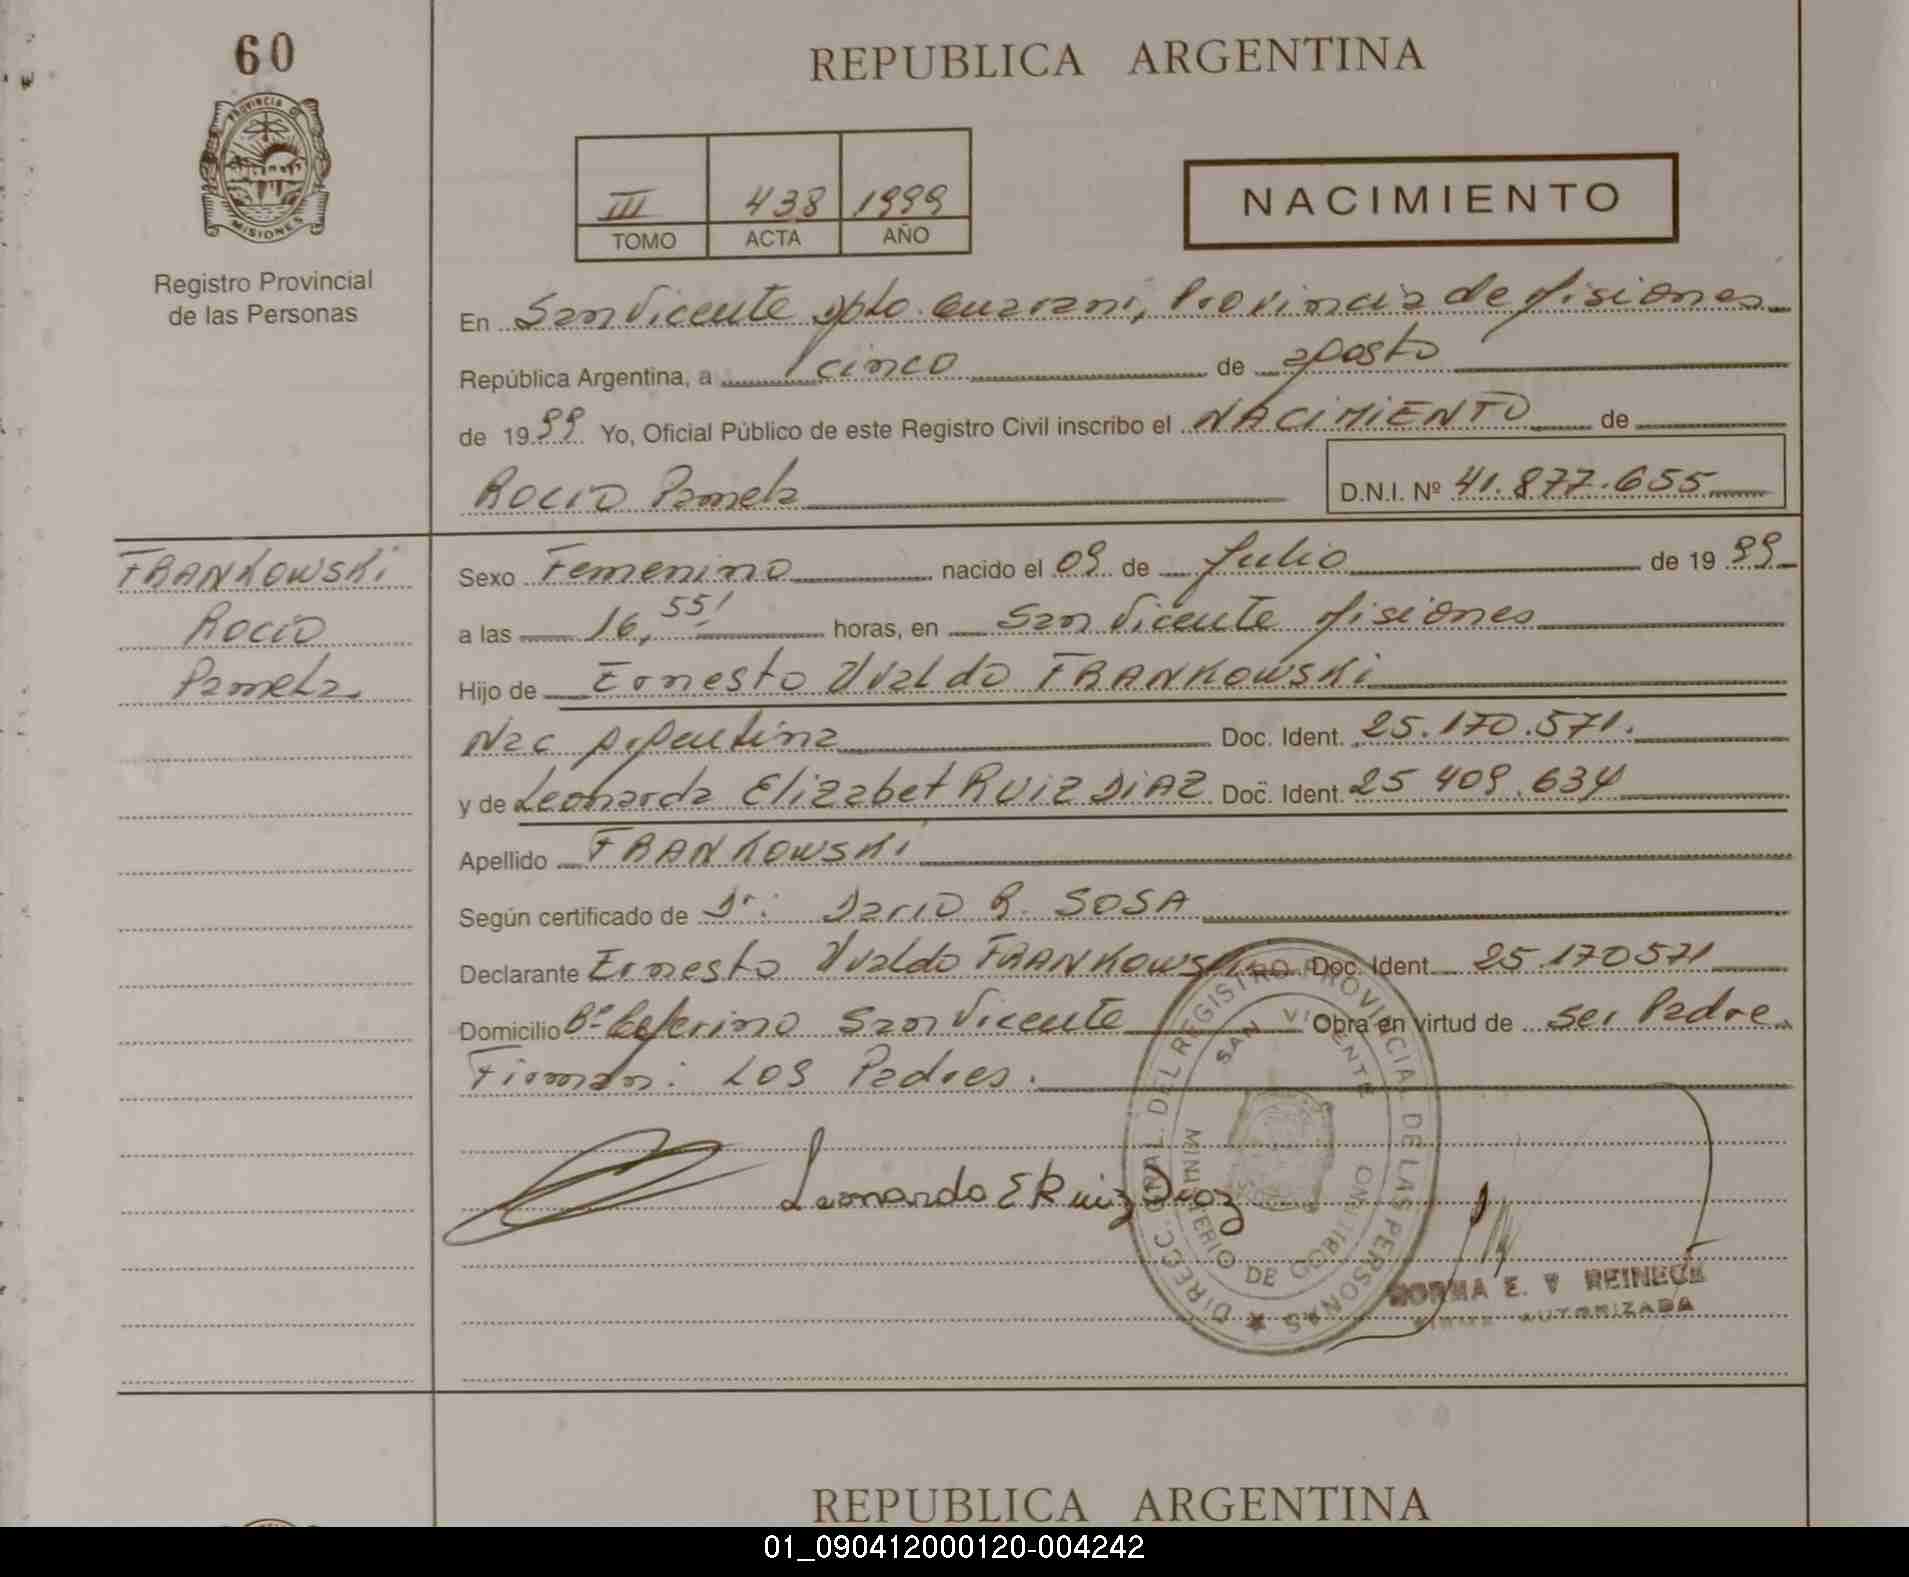 60
PROVINCIA DE
MISIONES
Registro Provincial
de las Personas
REPUBLICA ARGENTINA
III 438 1999
TOMO ACTA AÑO
NACIMIENTO
En San Vicente Dpto. Guarani, Provincia de Misiones
República Argentina, a cinco de agosto
de 1999 Yo, Oficial Público de este Registro Civil inscribo el NACIMIENTO de
ROCIO Pamela D.N.I. Nº 41.877.655
FRANKOWSKi
ROCIO
Pamela
Sexo Femenino nacido el 09 de Julio de 1999
a las 16,55' horas, en San Vicente Misiones
Hijo de Ernesto Uvaldo FRANKOWSKi
Nac Argentina Doc. Ident. 25.170.571.
y de Leonarda Elizabet RUIZ DiAZ Doc. Ident. 25 409.634
Apellido FRANKOWSKi
Según certificado de Dr: Dario R. SOSA
Declarante Ernesto Uvaldo FRANKOWSKi Doc. Ident. 25.170571
Domicilio Bº Ceferino San Vicente Obra en virtud de ser Padre
Firman: LOS Padres.
Leonarda E Ruiz Diaz
DIRECC. GRAL. DEL REGISTRO PROVINCIAL DE LAS PERSONAS
SAN VICENTE
MINISTERIO DE GOBIERNO
NORMA E. V REINECK
FIRMA AUTORIZADA
REPUBLICA ARGENTINA
01_090412000120-004242